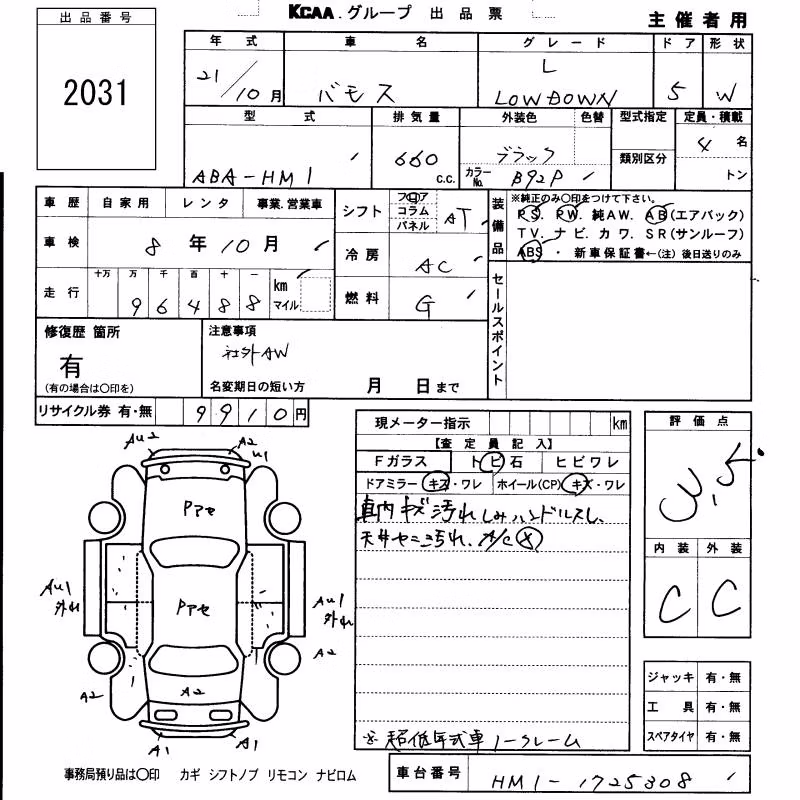 KCAA.グループ 出品票
主催者用
出品番号
2031
年式 車名 グレード ドア 形状
21/10月 バモス L LOWDOWN 5 W
型式 排気量 外装色 色替 型式指定 定員・積載
ABA-HM1 660 c.c. ブラック カラーNo. B92P 類別区分 4名 トン
車歴 自家用 レンタ 事業.営業車
車検 8年10月
走行 十万 万 千 百 十 一
96488 km マイル
シフト フロア コラム パネル AT
冷房 AC
燃料 G
装備品 ※純正のみ〇印をつけて下さい。
PS. PW. 純AW. AB(エアバック)
TV. ナビ. カワ. SR(サンルーフ)
ABS ・ 新車保証書←(注) 後日送りのみ
セールスポイント
修復歴 箇所
有
(有の場合は〇印を)
注意事項
社外AW
名変期日の短い方 月 日まで
リサイクル券 有・無 9910円
現メーター指示 km
【査定員記入】
Fガラス トビ石 ヒビワレ
ドアミラー キズ・ワレ ホイール(CP) キズ・ワレ
車内キズ汚れしみハンドルスレ
天井ヤニ汚れ. A/C×
※超低年式車ノークレーム
評価点
3.5
内装 外装
C C
ジャッキ 有・無
工具 有・無
スペアタイヤ 有・無
AU2 A2 U1
Pアセ
AU1 外れ
Pアセ
AU1 外れ
A2
A2
A2
A1 A1
事務局預り品は〇印 カギ シフトノブ リモコン ナビロム
車台番号 HM1-1725308